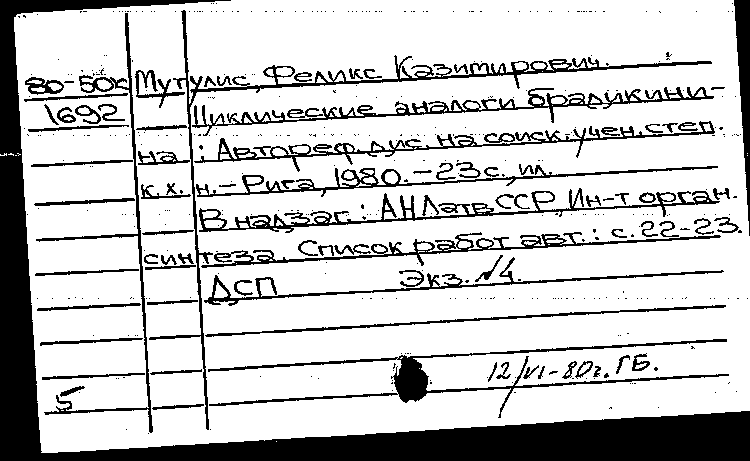 80-50к Мутулис, Феликс Казимирович.
1692 Циклические аналоги брадикини-
на : Автореф. дис. на соиск. учен. степ.
к. х. н. - Рига, 1980. - 23 с., ил.
В надзаг. : АН Латв. ССР, Ин-т орган.
синтеза. Список работ авт. : с. 22-23.
ДСП Экз. №4.
12/VI-80г. ГБ.
5